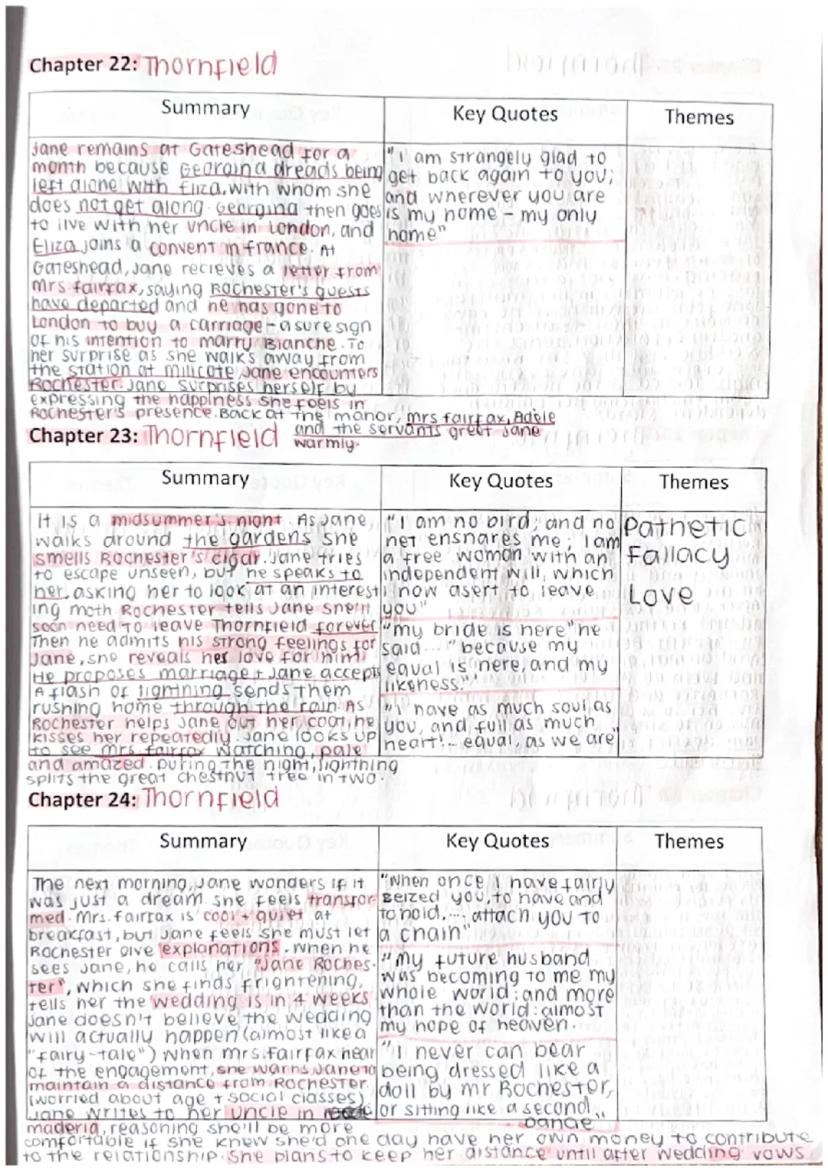 Chapter 22: Thornfield
Summary
Key Quotes
Themes
Jane remains at Gateshead for a
month because Georgina dreads being
left alone with Eliza, with whom she
does not get along. Georgina then goes
to live with her uncle in London, and
Eliza joins a convent in france. At
Gateshead, Jane recieves a letter from
Mrs fairfax, saying Rochester's guests
have departed and he has gone to
London to buy a carriage - a sure sign
of his intention to marry Blanche. To
her surprise as she walks away from
the station at Milicote Jane encounters
Rochester. Jane surprises herself by
expressing the happiness she feels in
Rochester's presence. Back at the manor, mrs fairfax, Adele
and the servants greet Jane
warmly.
"I am strangely glad to
get back again to you;
and wherever you are
is my home - my only
home"
Chapter 23: Thornfield
Summary
Key Quotes
Themes
It is a midsummer's night As Jane
walks around the gardens she
smells Rochester's cigar. Jane tries
to escape unseen, but he speaks to
her, asking her to look at an interest
ing moth Rochester tells Jane she'll
soon need to leave Thornfield forever
Then he admits his strong feelings for
Jane, she reveals her love for him!
He proposes marriage + Jane accept
A flash of lightning sends them
rushing home through the rain As
Rochester helps Jane out her coat, he
kisses her repeatedly. Jane looks up
to see mrs fairfax watching, pale
and amazed. During the night, lightning
splits the great chestnut tree in two.
"I am no bird; and no
net ensnares me; I am
a free woman with an
independent will, which
I now asert to leave
you"
"my bride is here" he
said... "because my
equal is here, and my
likeness."
"I have as much soul as
you, and full as much
heart!... equal, as we are"
Pathetic
Fallacy
Love
Chapter 24: Thornfield
Summary
Key Quotes
Themes
The next morning, Jane wonders if it
was just a dream she feels transfor
med. Mrs. Fairfax is cool + quiet at
breakfast, but Jane feels she must let
Rochester give explanations. When he
sees Jane, he calls her "Jane Roches-
ter", which she finds frightening,
tells her the wedding is in 4 weeks
Jane doesn't believe the wedding
will actually happen (almost like a
"fairy-tale") When mrs. Fairfax hear
of the engagement, she warns Jane to
maintain a distance from Rochester.
(worried about age + social classes)
Jane writes to her uncle in
maderia, reasoning she'll be more
comfortable if she knew she'd one day have her own money to contribute
to the relationship. She plans to keep her distance until after wedding vows
"When once I have fairly
seized you, to have and
to hold.... attach you to
a chain"
"my future husband
was becoming to me my
whole world; and more
than the world: almost
my hope of heaven.
"I never can bear
being dressed like a
doll by mr Rochester,
or sitting like a second
Danae"